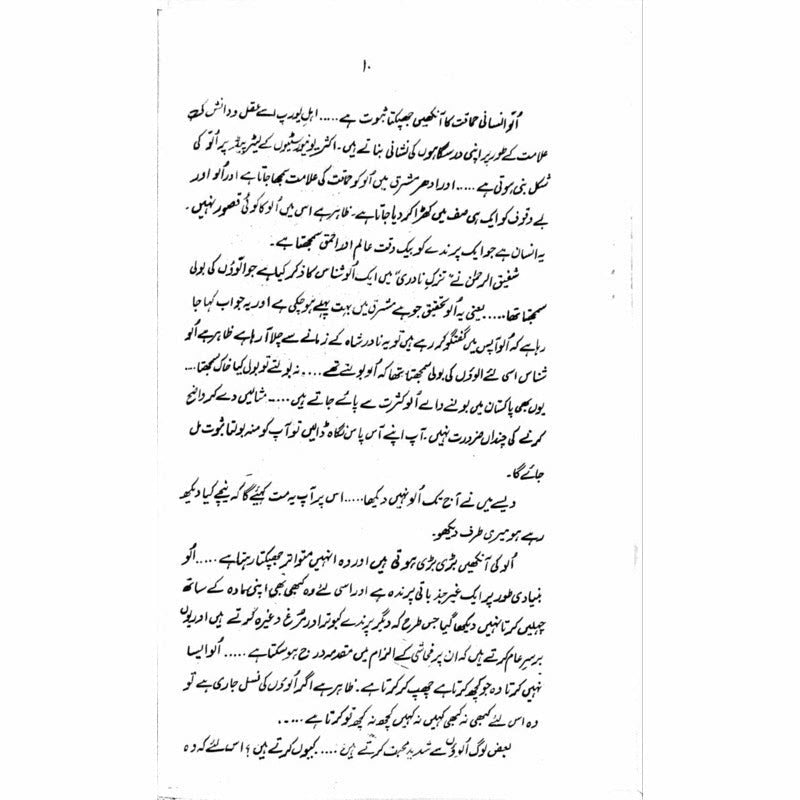 ۱۰
اُلّو انسانی حماقت کا آنکھیں جھپکتا ثبوت ہے..... اہلِ یورپ اسے عقل و دانش کی
علامت کے طور پر اپنی درسگاہوں کی نشانی بناتے ہیں۔ اکثر یونیورسٹیوں کے لیٹر پیڈز پر اُلّو کی
شکل بنی ہوتی ہے..... اور ادھر مشرق میں اُلو کو حماقت کی علامت سمجھا جاتا ہے اور اُلو اور
بے وقوف کو ایک ہی صف میں کھڑا کر دیا جاتا ہے۔ ظاہر ہے اس میں اُلو کا کوئی قصور نہیں۔
یہ انسان ہے جو ایک پرندے کو بیک وقت عالم اور احمق سمجھتا ہے۔
شفیق الرحمٰن نے "تزکِ نادری" میں ایک اُلو شناس کا ذکر کیا ہے جو الوؤں کی بولی
سمجھتا تھا..... یعنی یہ اُلو تحقیق جو ہے مشرق میں بہت پہلے ہو چکی ہے اور یہ جو اب کہا جا
رہا ہے کہ اُلو آپس میں گفتگو کر رہے ہیں تو یہ نادر شاہ کے زمانے سے چلا آ رہا ہے ظاہر ہے اُلو
شناس اسی لئے الوؤں کی بولی سمجھتا تھا کہ اُلو بولتے تھے..... نہ بولتے تو بولی کیا خاک سمجھتا....
یوں بھی پاکستان میں بولنے والے اُلو کثرت سے پائے جاتے ہیں..... مثالیں دے کر واضح
کرنے کی چنداں ضرورت نہیں۔ آپ اپنے آس پاس نگاہ ڈالیں تو آپ کو منہ بولتا ثبوت مل
جائے گا۔
ویسے میں نے آج تک اُلو نہیں دیکھا..... اس پر آپ یہ مت کہئیے گا کہ نیچے کیا دیکھ
رہے ہو میری طرف دیکھو۔
اُلو کی آنکھیں بڑی بڑی ہوتی ہیں اور وہ انہیں متواتر جھپکتا رہتا ہے..... اُلو
بنیادی طور پر ایک غیر جذباتی پرندہ ہے اور اسی لئے وہ کبھی بھی اپنی مادہ کے ساتھ
چہلیں کرتا نہیں دیکھا گیا جس طرح کہ دیگر پرندے کبوتر اور مُرغ وغیرہ کرتے ہیں اور یوں
برسرِ عام کرتے ہیں کہ ان پر فحاشی کے الزام میں مقدمہ درج ہو سکتا ہے..... اُلو ایسا
نہیں کرتا وہ جو کچھ کرتا ہے چھپ کر کرتا ہے۔ ظاہر ہے اگر اُلوؤں کی نسل جاری ہے تو
وہ اس لئے کبھی نہ کبھی کہیں نہ کہیں کچھ نہ کچھ تو کرتا ہے.....
بعض لوگ اُلوؤں سے شدید محبت کرتے ہیں..... کیوں کرتے ہیں؟ اس لئے کہ وہ